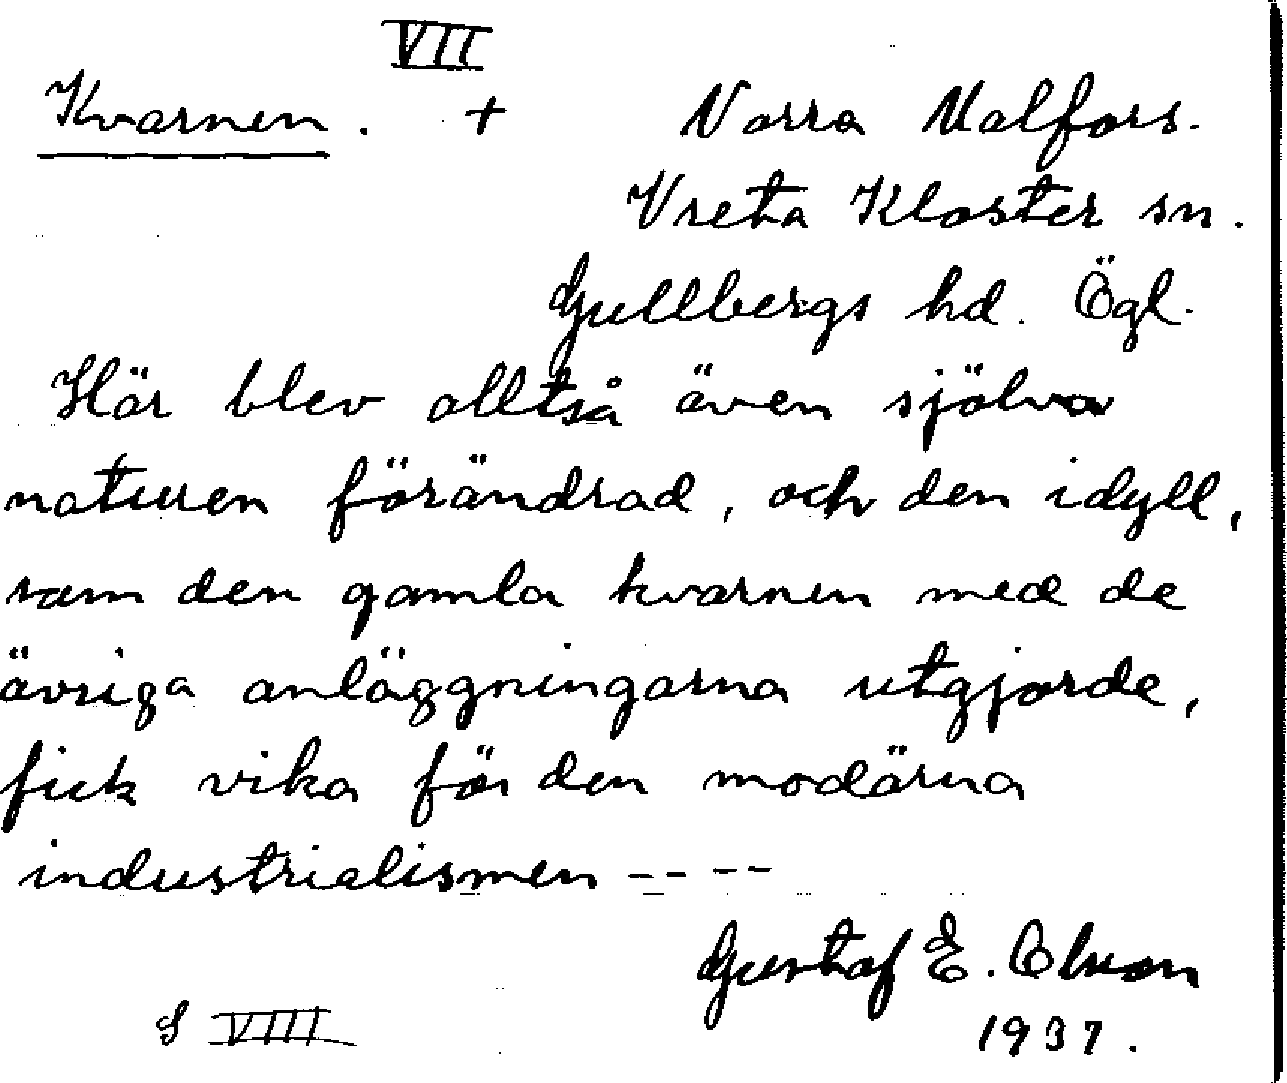 VII
Kvarnen. + Norra Malfors.
Vreta Kloster sn.
Gullbergs hd. Ögl.
Här blev alltså även själva
naturen förändrad, och den idyll,
som den gamla kvarnen med de
övriga anläggningarna utgjorde,
fick vika för den modärna
industrialismen ----
Gustaf E. Olsson
1937.
S VIII